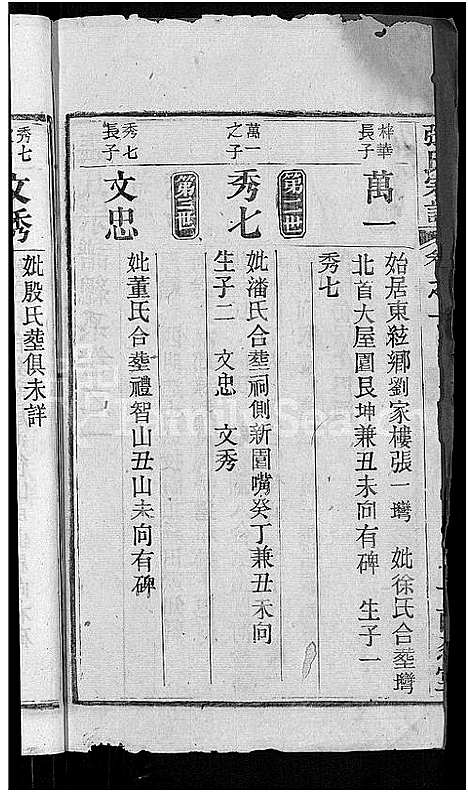 梓華
長子
萬一
始居東絃鄉劉家樓張一壪 妣徐氏合塟壪
北首大屋園艮坤兼丑未向有碑 生子一
秀七
第二世
萬一
之子
秀七
妣潘氏合塟祠側新園嘴癸丁兼丑未向
生子二 文忠 文秀
第三世
秀七
長子
文忠
妣董氏合塟禮智山丑山未向有碑
秀七
文秀
妣殷氏塟俱未詳